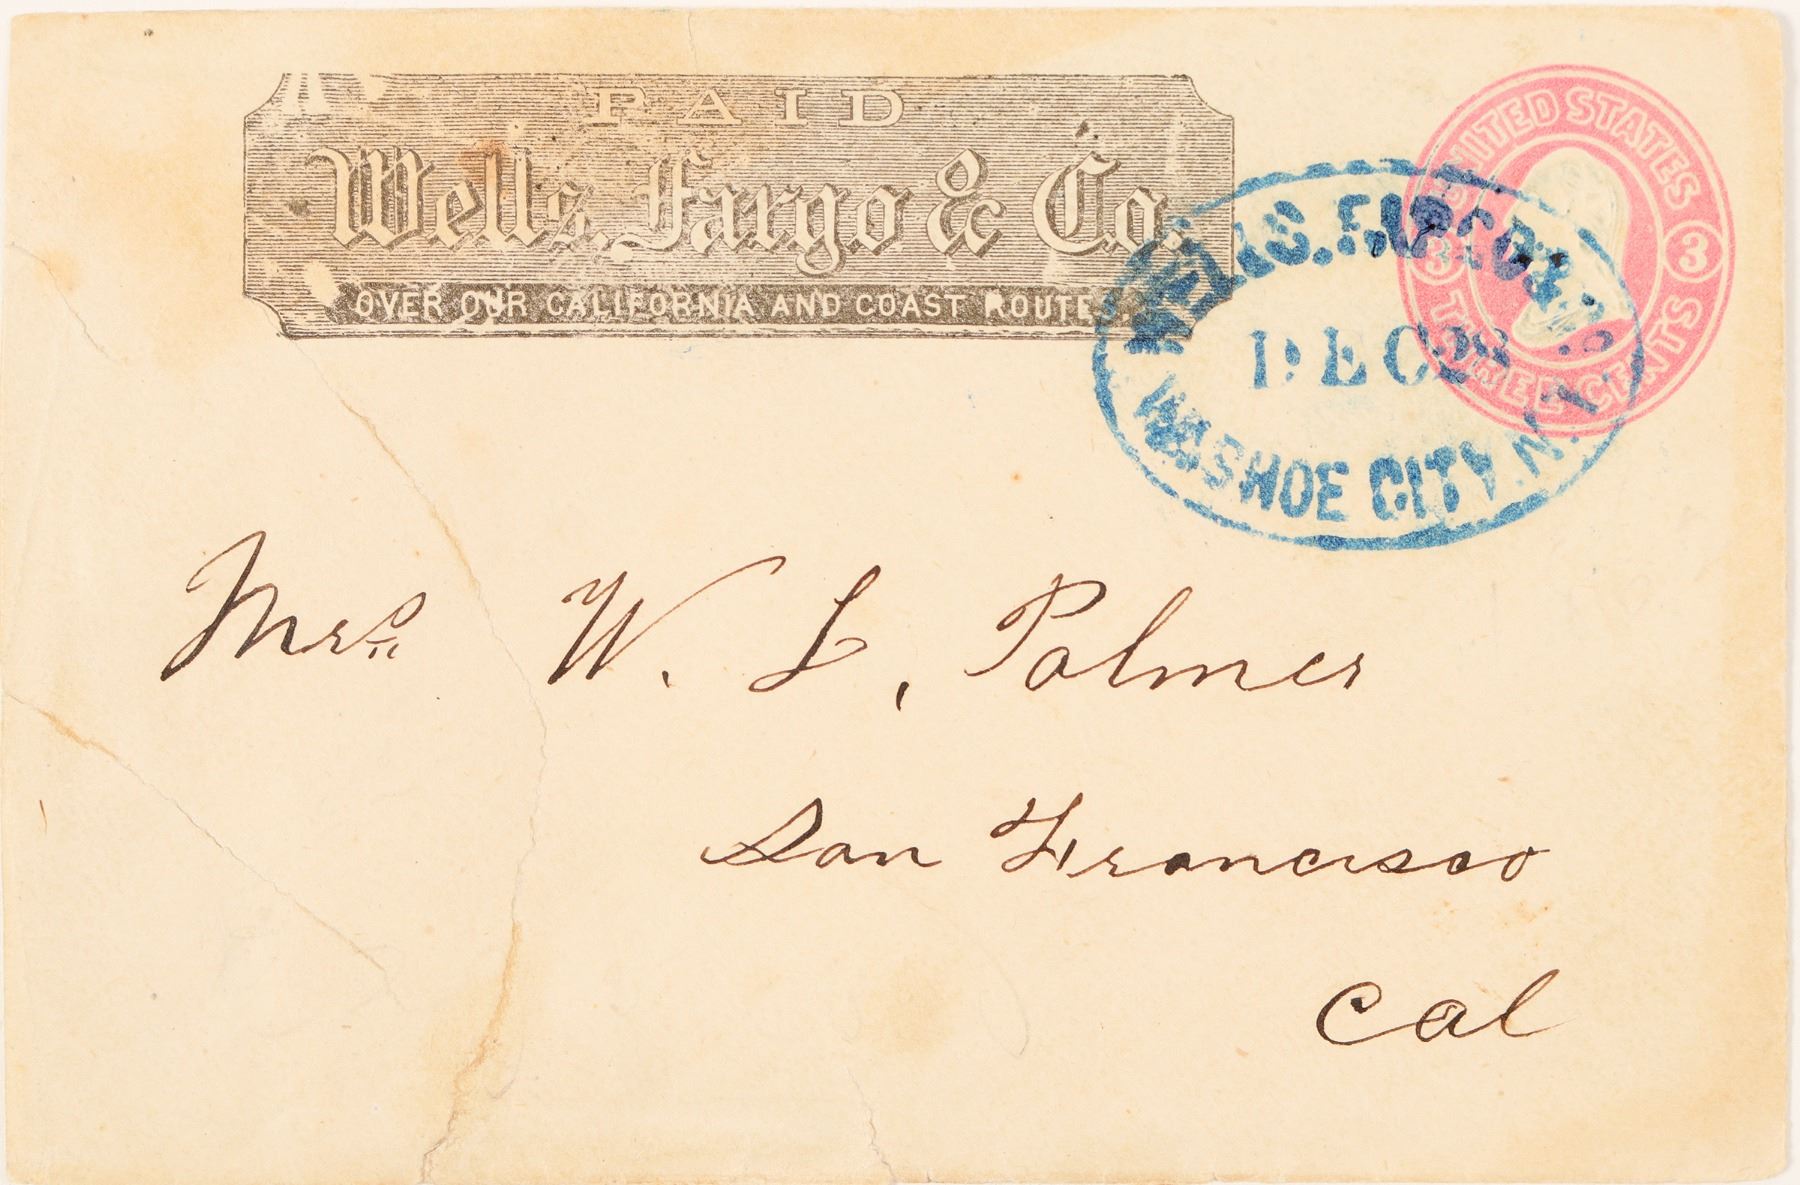 PAID
Wells, Fargo & Co.
OVER OUR CALIFORNIA AND COAST ROUTES
UNITED STATES
3 3
THREE CENTS
WELLS. FARGO &
DEC 28
WASHOE CITY. N.T.
Mrs. W. L, Palmer
San Francisco
Cal